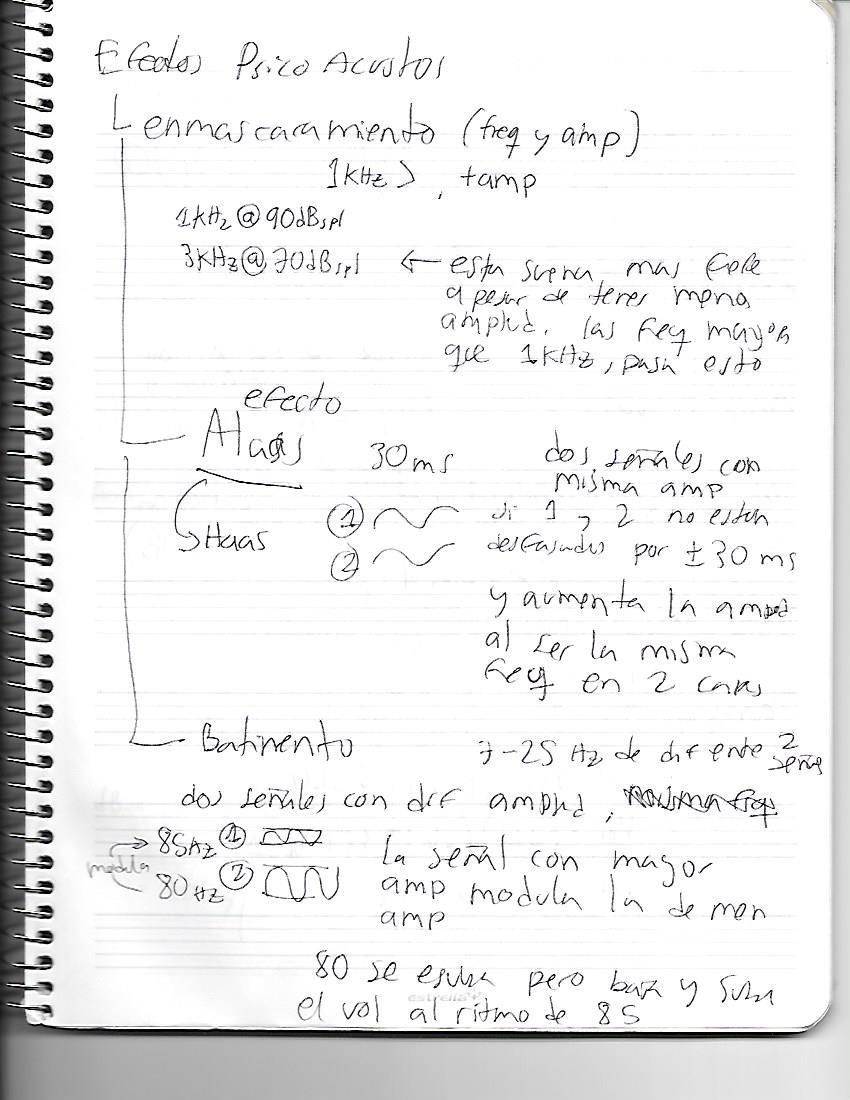 Efectos Psico Acustos
enmascaramiento (freq y amp)
1kHz >, tamp
1kHz @ 90dBspl
3kHz @ 70dBspl ← esta suena mas
a pesar de tener mena
amplid. las freq mayor
que 1kHz, pasa esto
efecto
Haas 30ms dos señales con
misma amp
Haas ① si 1 y 2 no estan
② desfasados por ±30 ms
y aumenta la
al ser la misma
freq en 2 canas
Batimento 7-25 Hz de dif ente 2
señas
dos señales con dif amplid,
85Hz ① La señal con mayor
modula 80Hz ② amp modula la de men
amp
80 se pero baja y suba
estrella
el vol al ritmo de 85